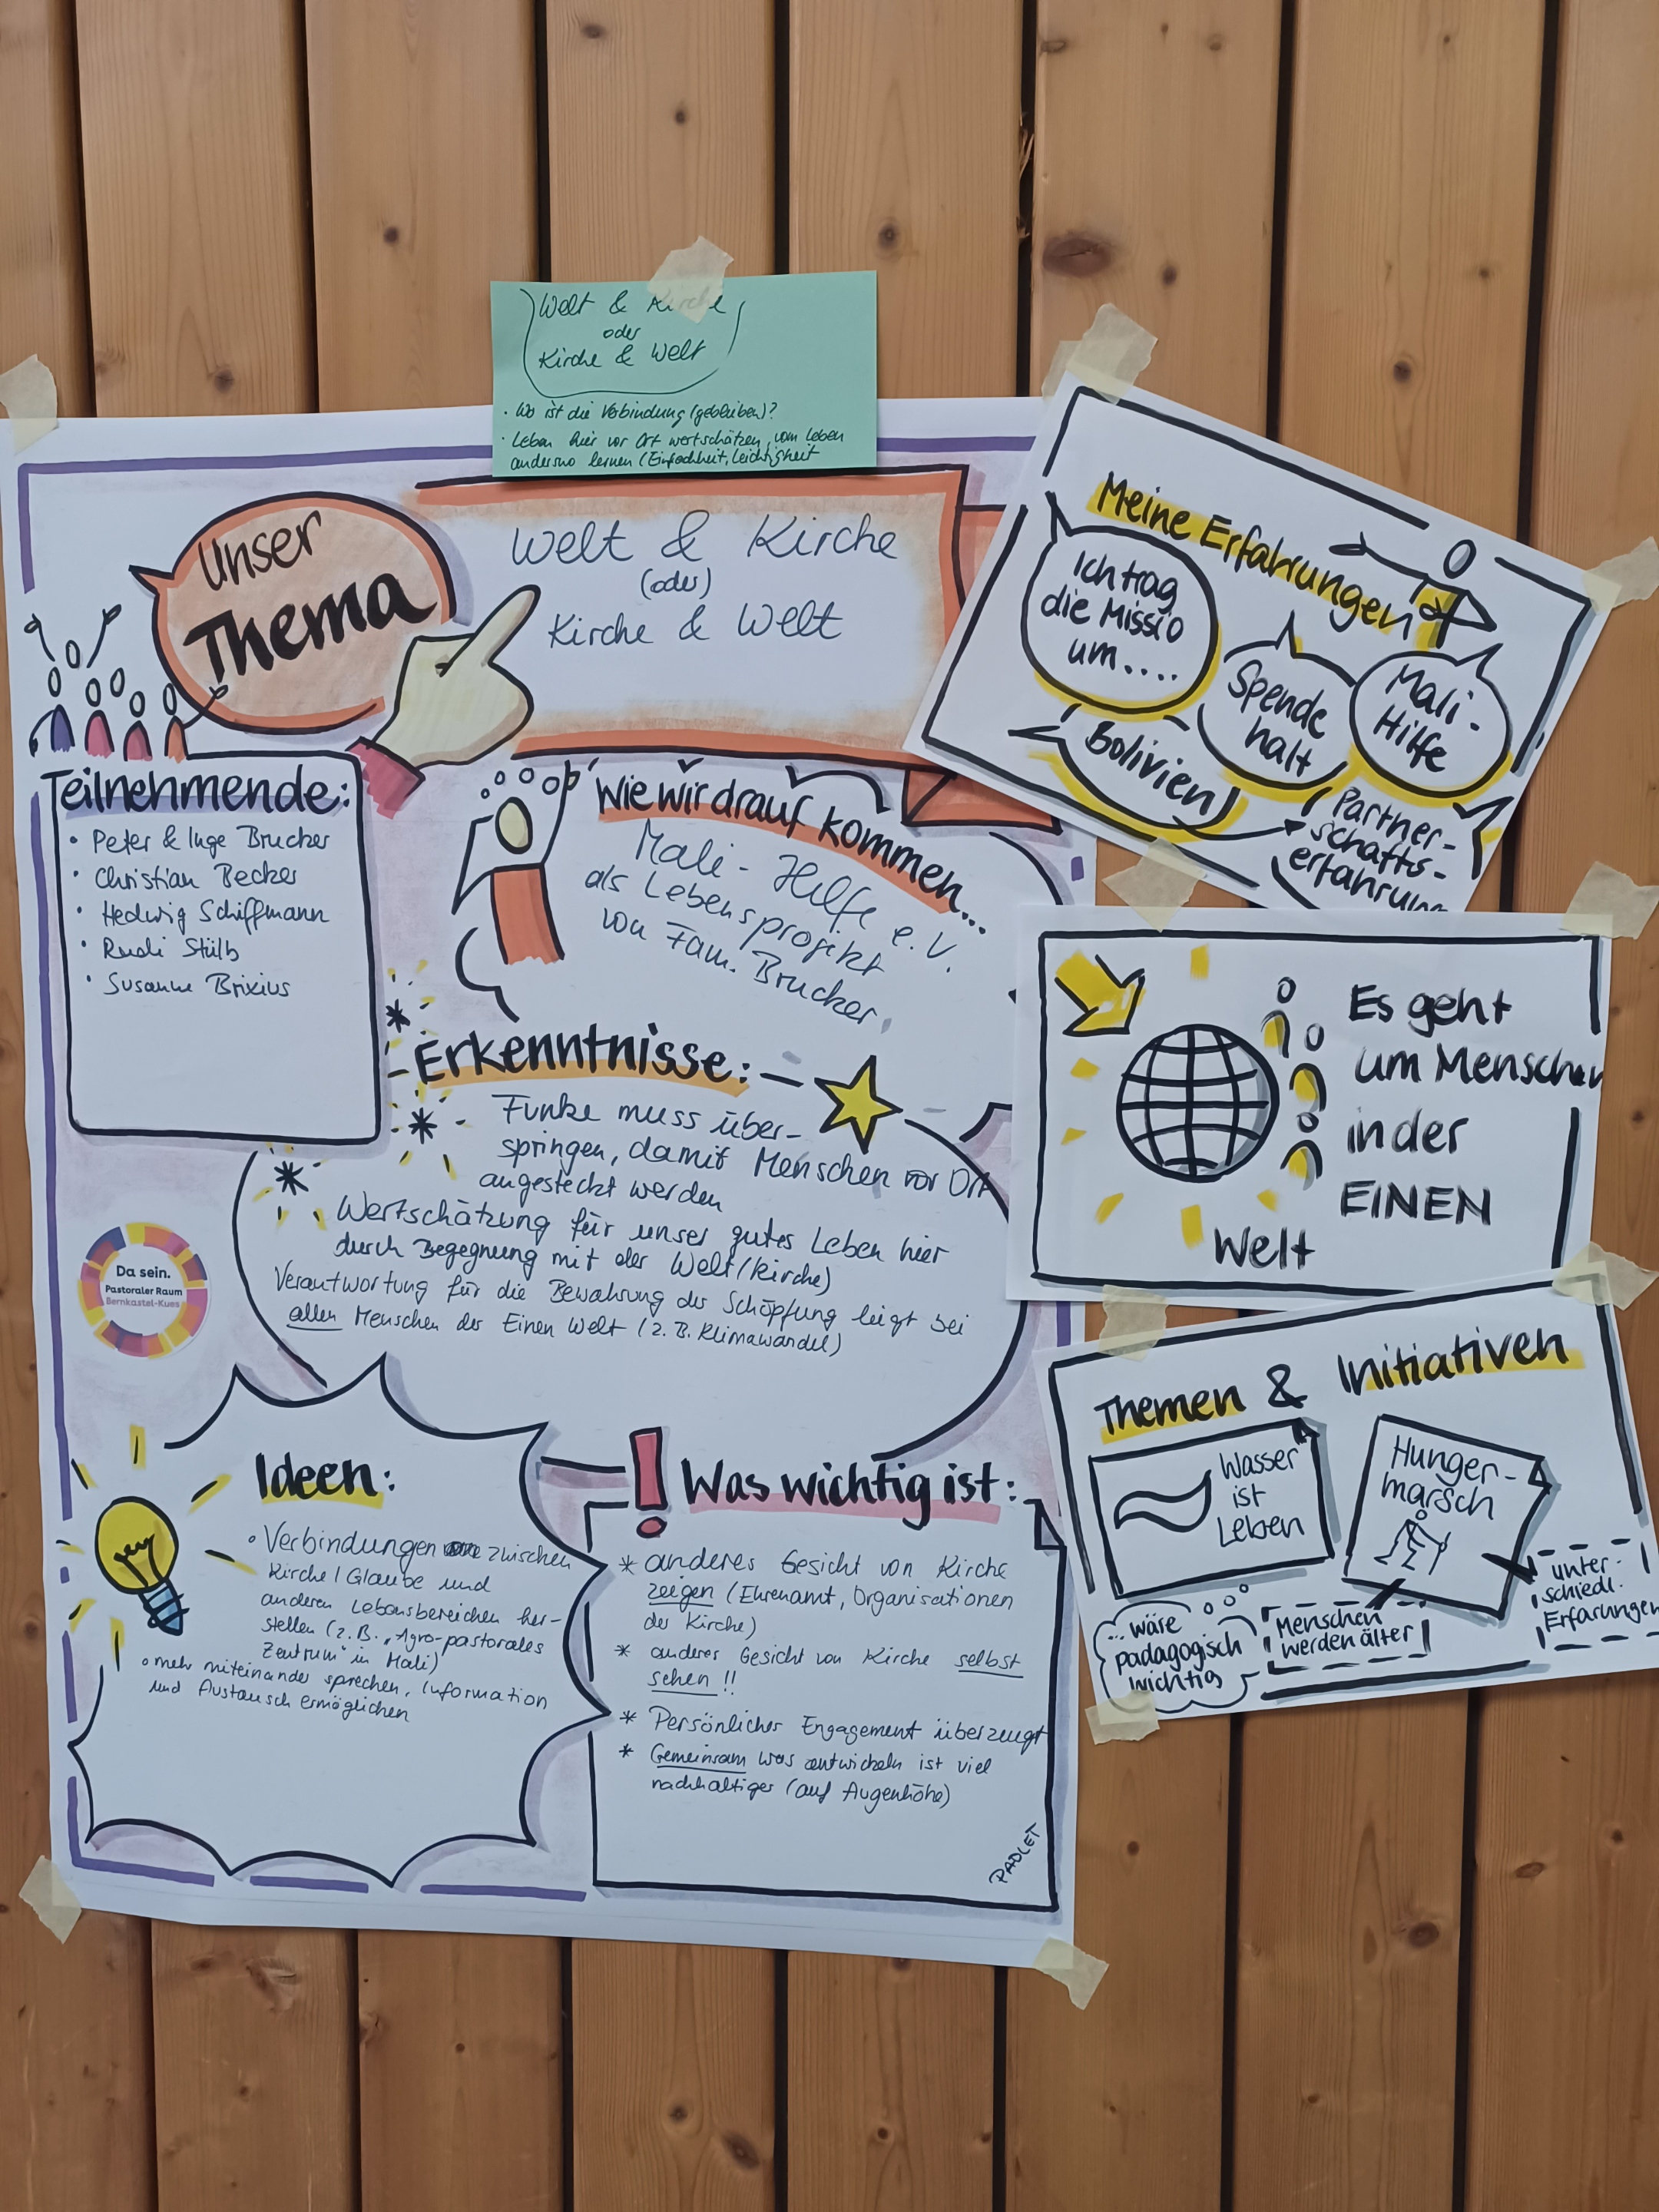 Welt & Kirche
oder
Kirche & Welt
· Wo ist die Verbindung (geblieben)?
· Leben hier vor Ort wertschätzen, vom Leben
anderswo lernen (Einfachheit, Leichtigkeit
Unser
Thema
Welt & Kirche
(oder)
Kirche & Welt
Teilnehmende:
• Peter & Inge Brucker
• Christian Becker
• Hedwig Schiffmann
• Rudi Stülb
• Susanne Brixius
Wie wir drauf kommen...
Mali-Hilfe e.V.
als Lebensprojekt
von Fam. Brucker
Erkenntnisse:
Funke muss über-
springen, damit Menschen vor Ort
angesteckt werden
Wertschätzung für unser gutes Leben hier
durch Begegnung mit der Welt/(kirche)
Verantwortung für die Bewahrung der Schöpfung liegt bei
allen Menschen der Einen Welt (z.B. Klimawandel)
Da sein.
Pastoraler Raum
Bernkastel-Kues
Ideen:
• Verbindungen zwischen
Kirche/Glaube und
anderen Lebensbereichen her-
stellen (z.B. „Agro-pastorales
Zentrum" in Mali)
• mehr miteinander sprechen, Information
und Austausch ermöglichen
Was wichtig ist:
* anderes Gesicht von Kirche
zeigen (Ehrenamt, Organisationen
der Kirche)
* anderes Gesicht von Kirche selbst
sehen!!
* Persönliches Engagement überzeugt
* Gemeinsam was entwickeln ist viel
nachhaltiger (auf Augenhöhe)
PADLET
Meine Erfahrungen
Ich trag
die Missio
um....
Spende
halt
Mali-
Hilfe
Bolivien
Partner-
schafts-
erfahrung
Es geht
um Menschen
in der
EINEN
Welt
Themen & Initiativen
Wasser
ist
Leben
Hunger-
marsch
... wäre
pädagogisch
wichtig
Menschen
werden älter
unter-
schiedl.
Erfarungen